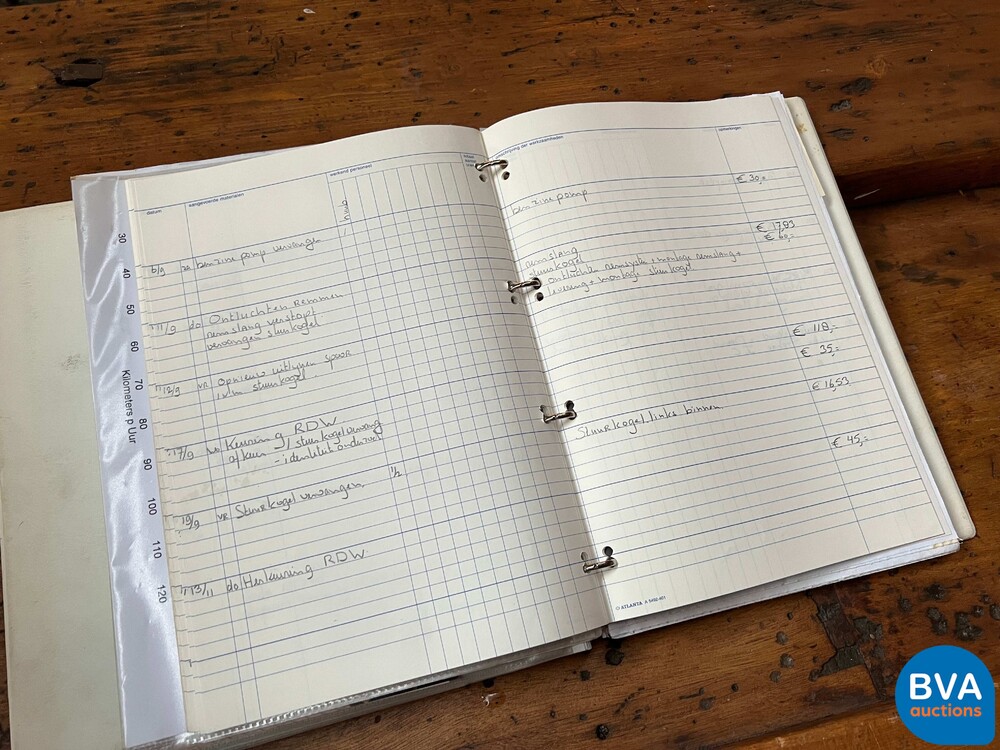 datum
aangewende materialen
werkend personeel
5/9 vr benzine pomp vervangen
11/9 do Ontluchten Remmen
remslang verstopt
vervangen stuurkogel
12/9 vr Opnieuw uitlijnen spoor
ivm stuurkogel
17/9 wo Keuring RDW
afkeur / stuurkogel vervang
- identiteit onderzoek
19/9 vr Stuurkogel vervangen 1/2
13/11 do Herkeuring RDW
30
40
50
60
70
Kilometers p Uur
80
90
100
110
120
omschrijving der werkzaamheden
opmerkingen
benzine pomp € 30,=
remslang € 17,93
stuurkogel € 60,=
ontluchten remsysteem + montage remslang +
levering + montage stuurkogel
€ 118,=
€ 35,=
€ 16,53
Stuurkogel links binnen
€ 45,=
ATLANTA A 5492-401
BVA
auctions